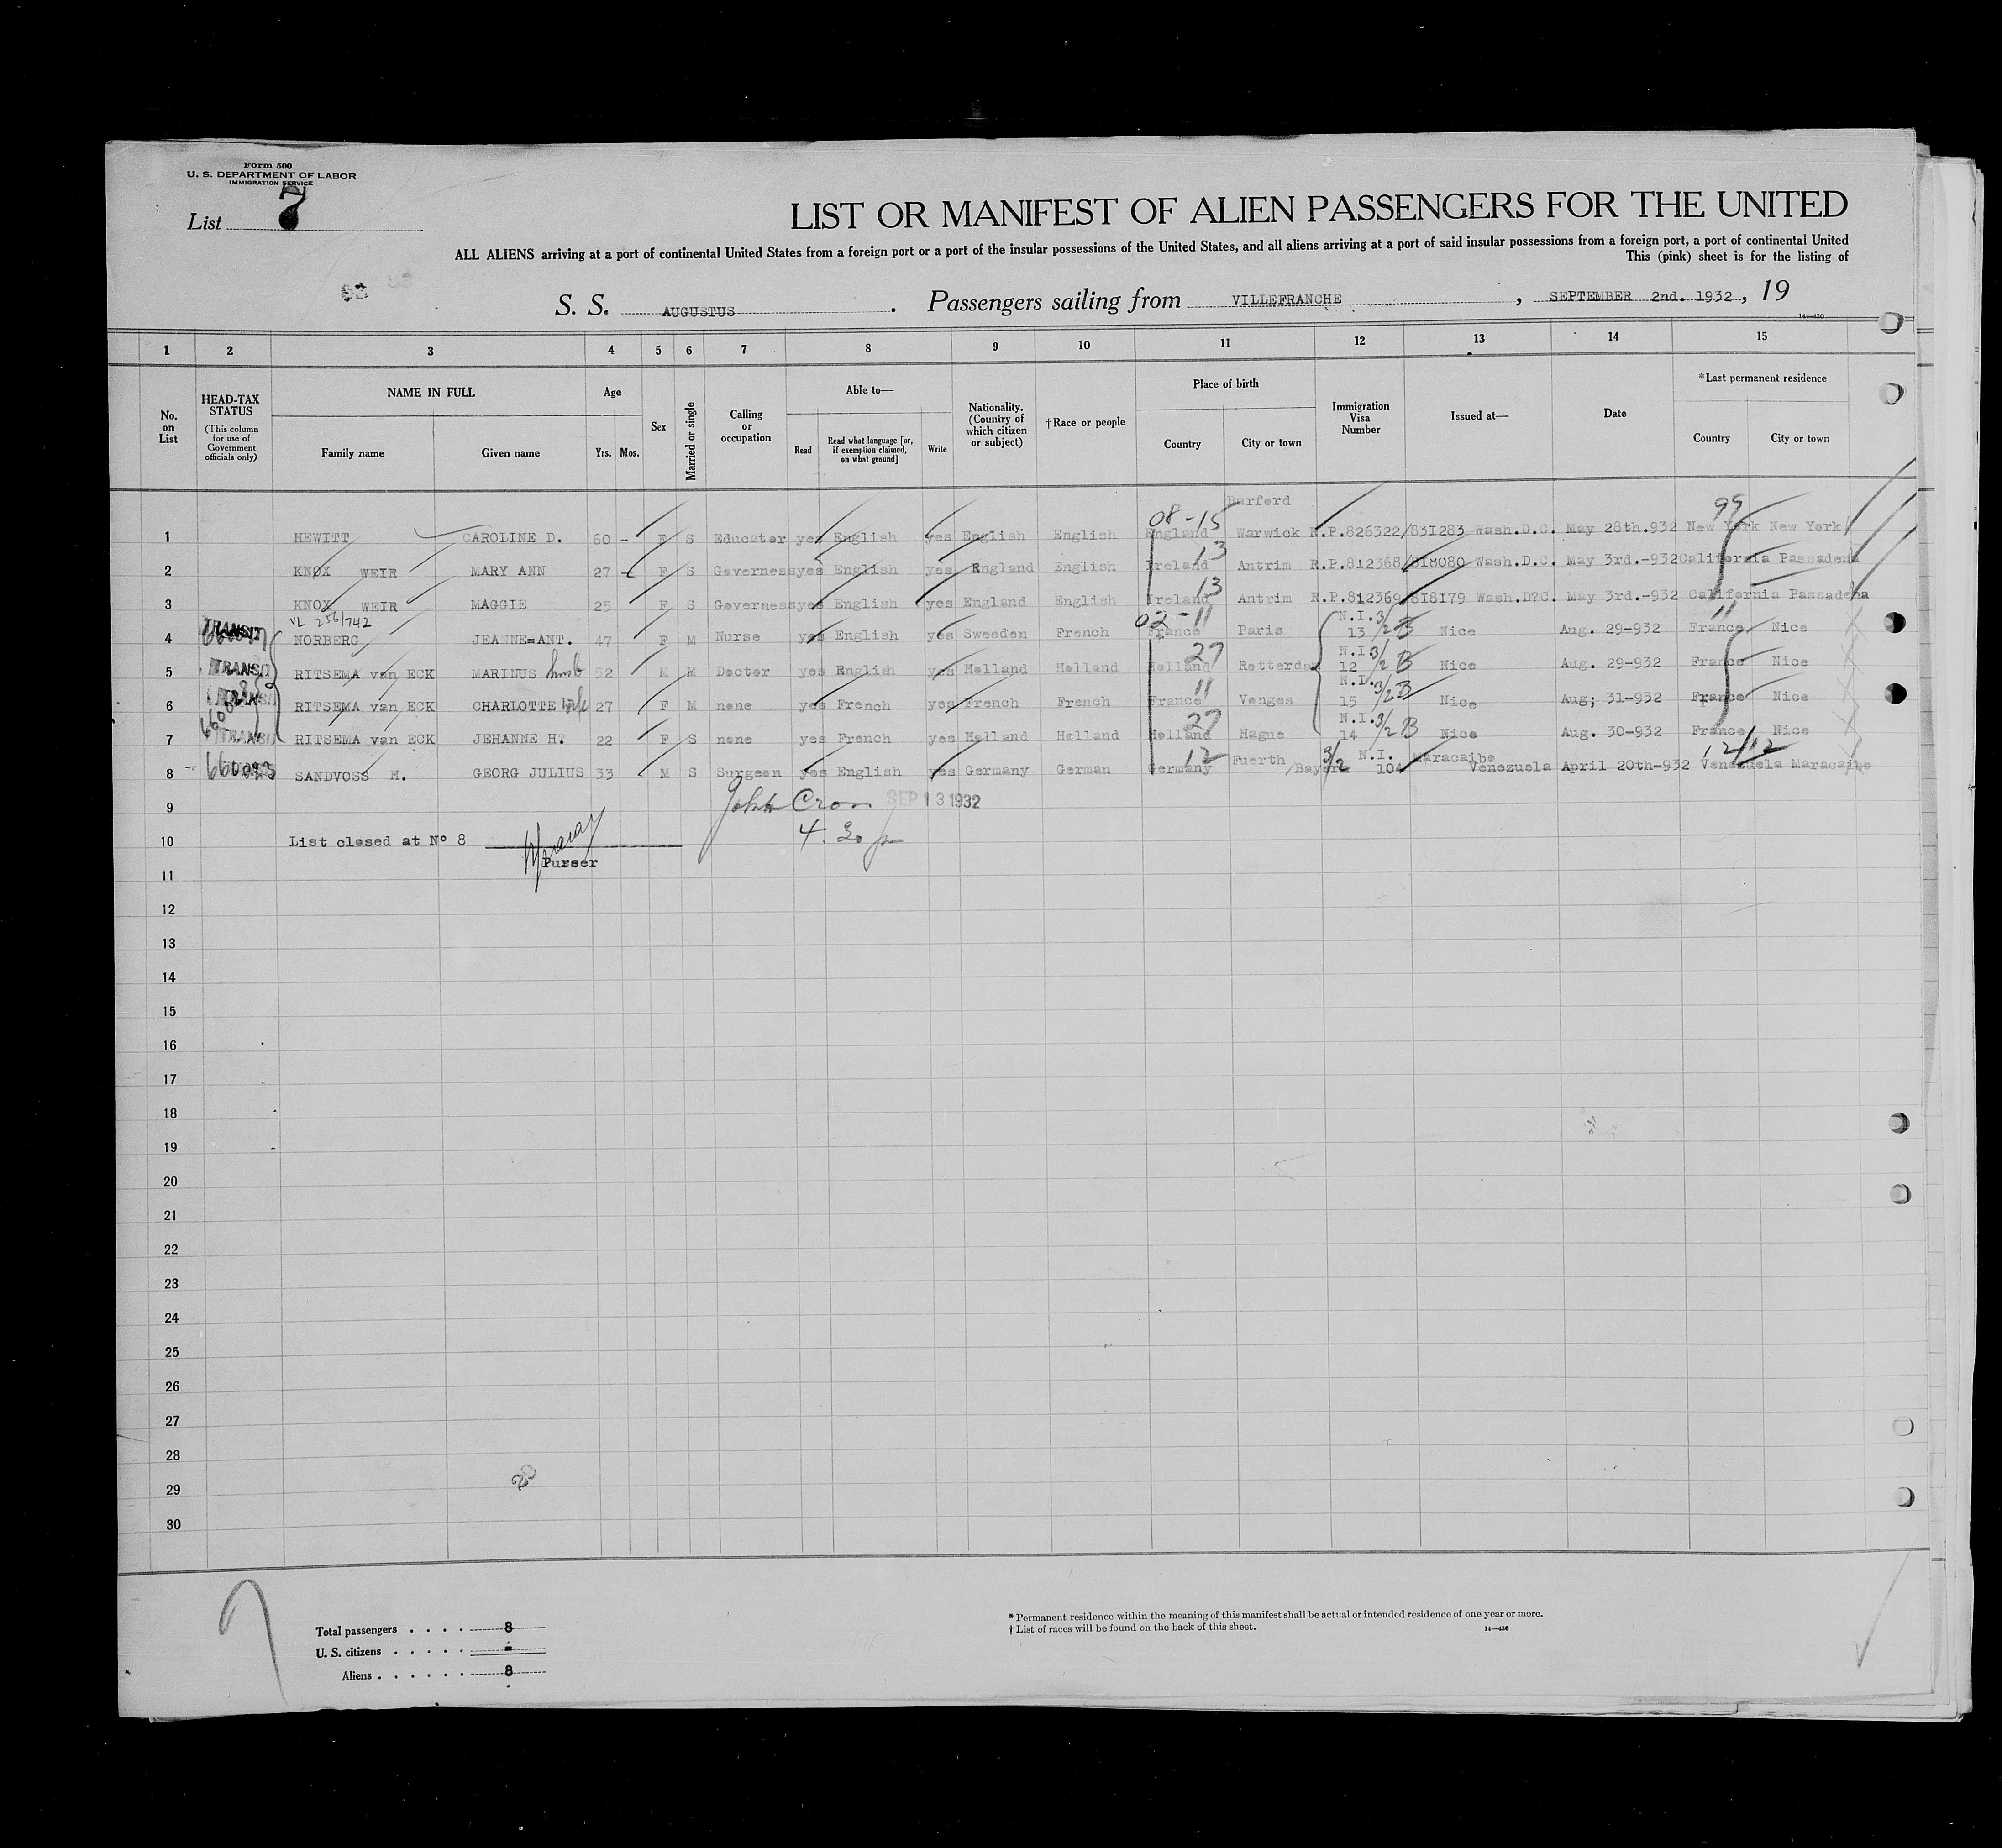 Form 500
U. S. DEPARTMENT OF LABOR
IMMIGRATION SERVICE
List 7
LIST OR MANIFEST OF ALIEN PASSENGERS FOR THE UNITED
ALL ALIENS arriving at a port of continental United States from a foreign port or a port of the insular possessions of the United States, and all aliens arriving at a port of said insular possessions from a foreign port, a port of continental United
This (pink) sheet is for the listing of
S. S. AUGUSTUS. Passengers sailing from VILLEFRANCHE, SEPTEMBER 2nd. 1932, 19
14—430
1 2 3 4 5 6 7 8 9 10 11 12 13 14 15
No. on List
HEAD-TAX STATUS (This column for use of Government officials only)
NAME IN FULL Family name Given name
Age Yrs. Mos.
Sex
Married or single
Calling or occupation
Able to— Read Read what language [or, if exemption claimed, on what ground] Write
Nationality. (Country of which citizen or subject)
†Race or people
Place of birth Country City or town
Immigration Visa Number
Issued at—
Date
*Last permanent residence Country City or town
Barferd
08-15 99
1 HEWITT CAROLINE D. 60 - F S Educater yes English yes English English England Warwick R.P.826322/831283 Wash.D.C. May 28th.932 New York New York
13
2 KNOX WEIR MARY ANN 27 - F S Governess yes English yes England English Ireland Antrim R.P.812368/818080 Wash.D.C. May 3rd.-932 California Passadena
13
3 KNOX WEIR MAGGIE 25 F S Governess yes English yes England English Ireland Antrim R.P.812369/818179 Wash.D?C. May 3rd.-932 California Passadena
VL 256/742 02-11 N.I. 3/2 B 11
4 TRANSIT NORBERG JEANNE=ANT. 47 F M Nurse yes English yes Sweeden French France Paris 13 Nice Aug. 29-932 France Nice
27 N.I. 3/2 B
5 TRANSIT RITSEMA van ECK MARINUS 52 M M Docter yes English yes Holland Holland Holland Rotterdam 12 Nice Aug. 29-932 France Nice
11 N.I. 3/2 B
6 RITSEMA van ECK CHARLOTTE wife 27 F M none yes French yes French French France Venges 15 Nice Aug; 31-932 France Nice
27 N.I. 3/2 B
7 TRANSIT RITSEMA van ECK JEHANNE H. 22 F S none yes French yes Holland Holland Holland Hague 14 Nice Aug. 30-932 France Nice
12 3/2 N.I. Maracaibe 12/12
8 SANDVOSS H. GEORG JULIUS 33 M S Surgeon yes English yes Germany German Germany Fuerth /Bayern 104 Venezuela April 20th-932 Venezuela Maracaibe
9 John Cron SEP 13 1932
10 List closed at Nº 8 4.30 p
Purser
11
12
13
14
15
16
17
18
19
20
21
22
23
24
25
26
27
28
29
30
Total passengers . . . . 8
U. S. citizens . . . . . -
Aliens . . . . . . 8
* Permanent residence within the meaning of this manifest shall be actual or intended residence of one year or more.
† List of races will be found on the back of this sheet. 14—430